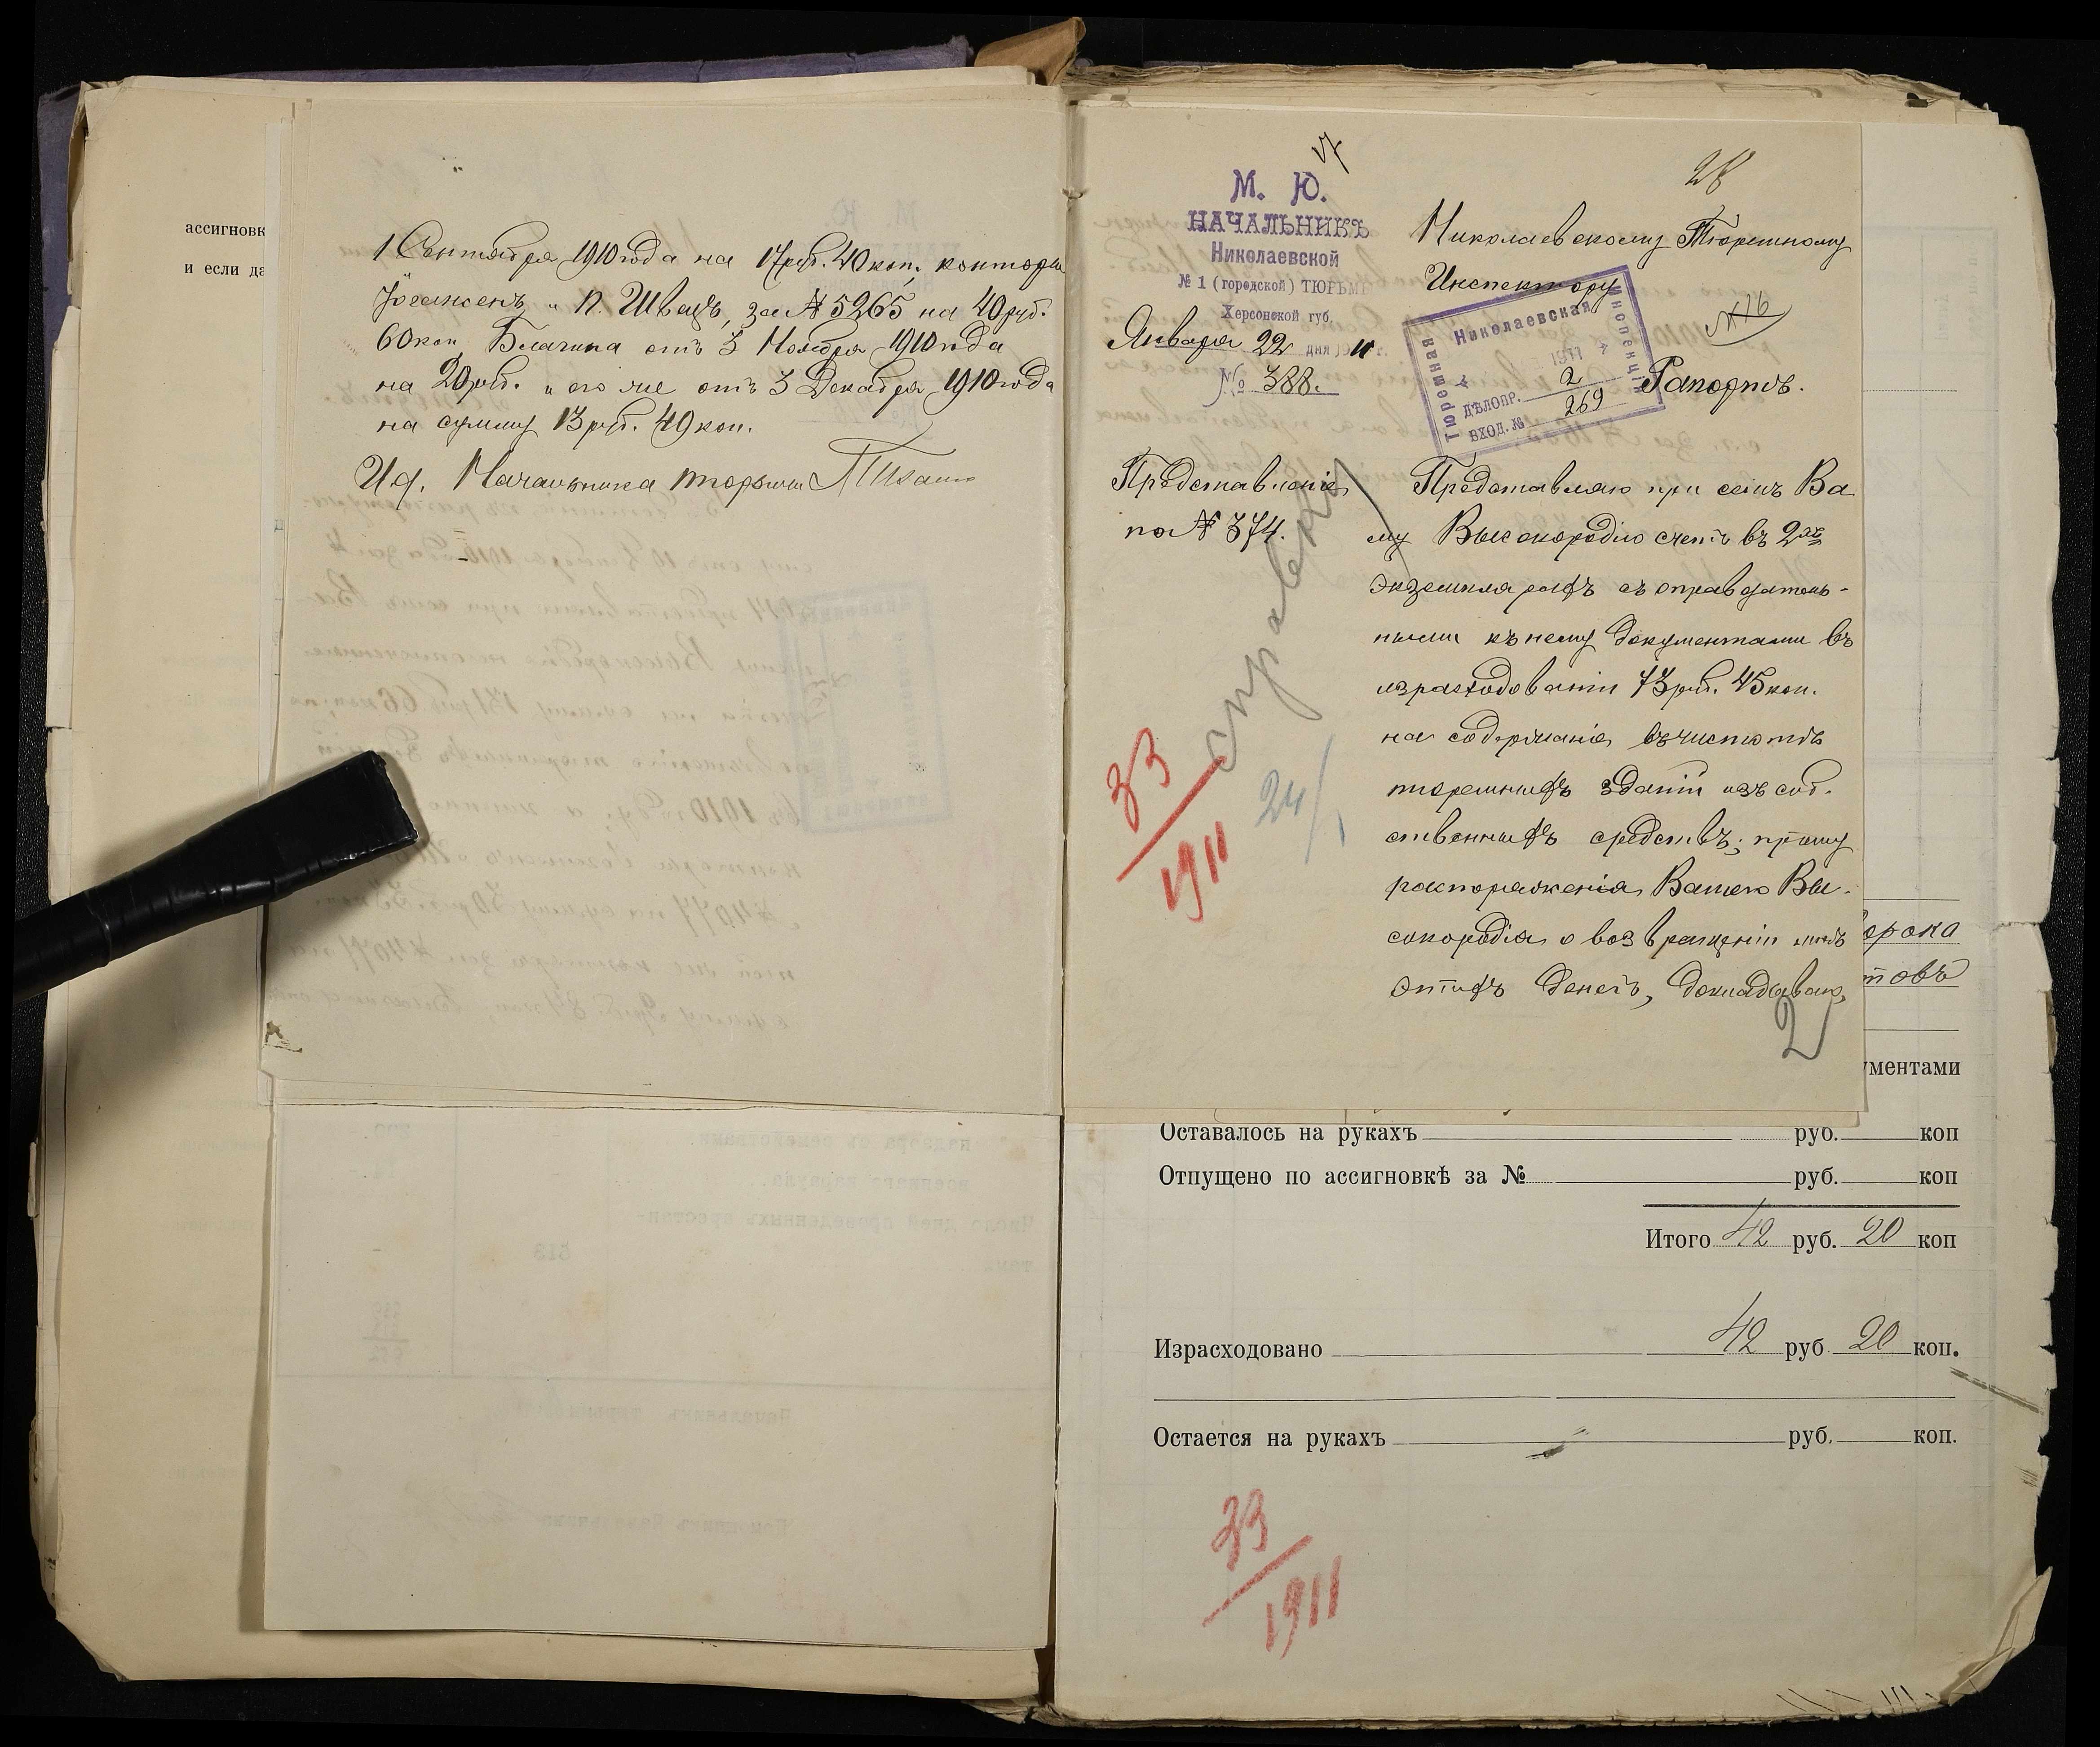 ассигновк
и если да
1 Сентября 1910 года на 17 руб. 40 коп, конторы
и П. Швецъ, за № 5265 на 40 руб.
60 коп Блачина отъ 3 Ноября 1910 года
на 20 руб. и его же отъ 3 Декабря 1910 года
на сумму 13 руб. 49 коп.
Ид. Начальника тюрьмы
М. Ю.
НАЧАЛЬНИКЪ
Николаевской
№ 1 (городской) ТЮРЬМ
Херсонской губ.
Января 22 дня 1911 г.
№ 388.
Представленіе
по № 374.
справка
33
1911
24/1
28
Николаевскому Тюремному
Инспектору
№16
Николаевская
Тюремная
Инспекція
1911
ДѢЛОПР. 2
ВХОД. № 269
Рапортъ.
Представляю при семъ Ва
му Высокородію счетъ въ 2хъ
экземплярахъ съ оправдатель-
ными къ нему документами въ
израсходованіи 73 руб. 45 коп.
на содержаніе въ чистотѣ
тюремныхъ зданій изъ соб-
ственныхъ средствъ; прошу
распоряженія Вашего Вы-
сокородія о возвращеніи мнѣ
этихъ денегъ, докладывая,
2
орока
товъ
ументами
Оставалось на рукахъ руб. коп
Отпущено по ассигновкѣ за № руб. коп
Итого 42 руб. 20 коп
Израсходовано 42 руб 20 коп.
Остается на рукахъ руб. коп.
33
1911